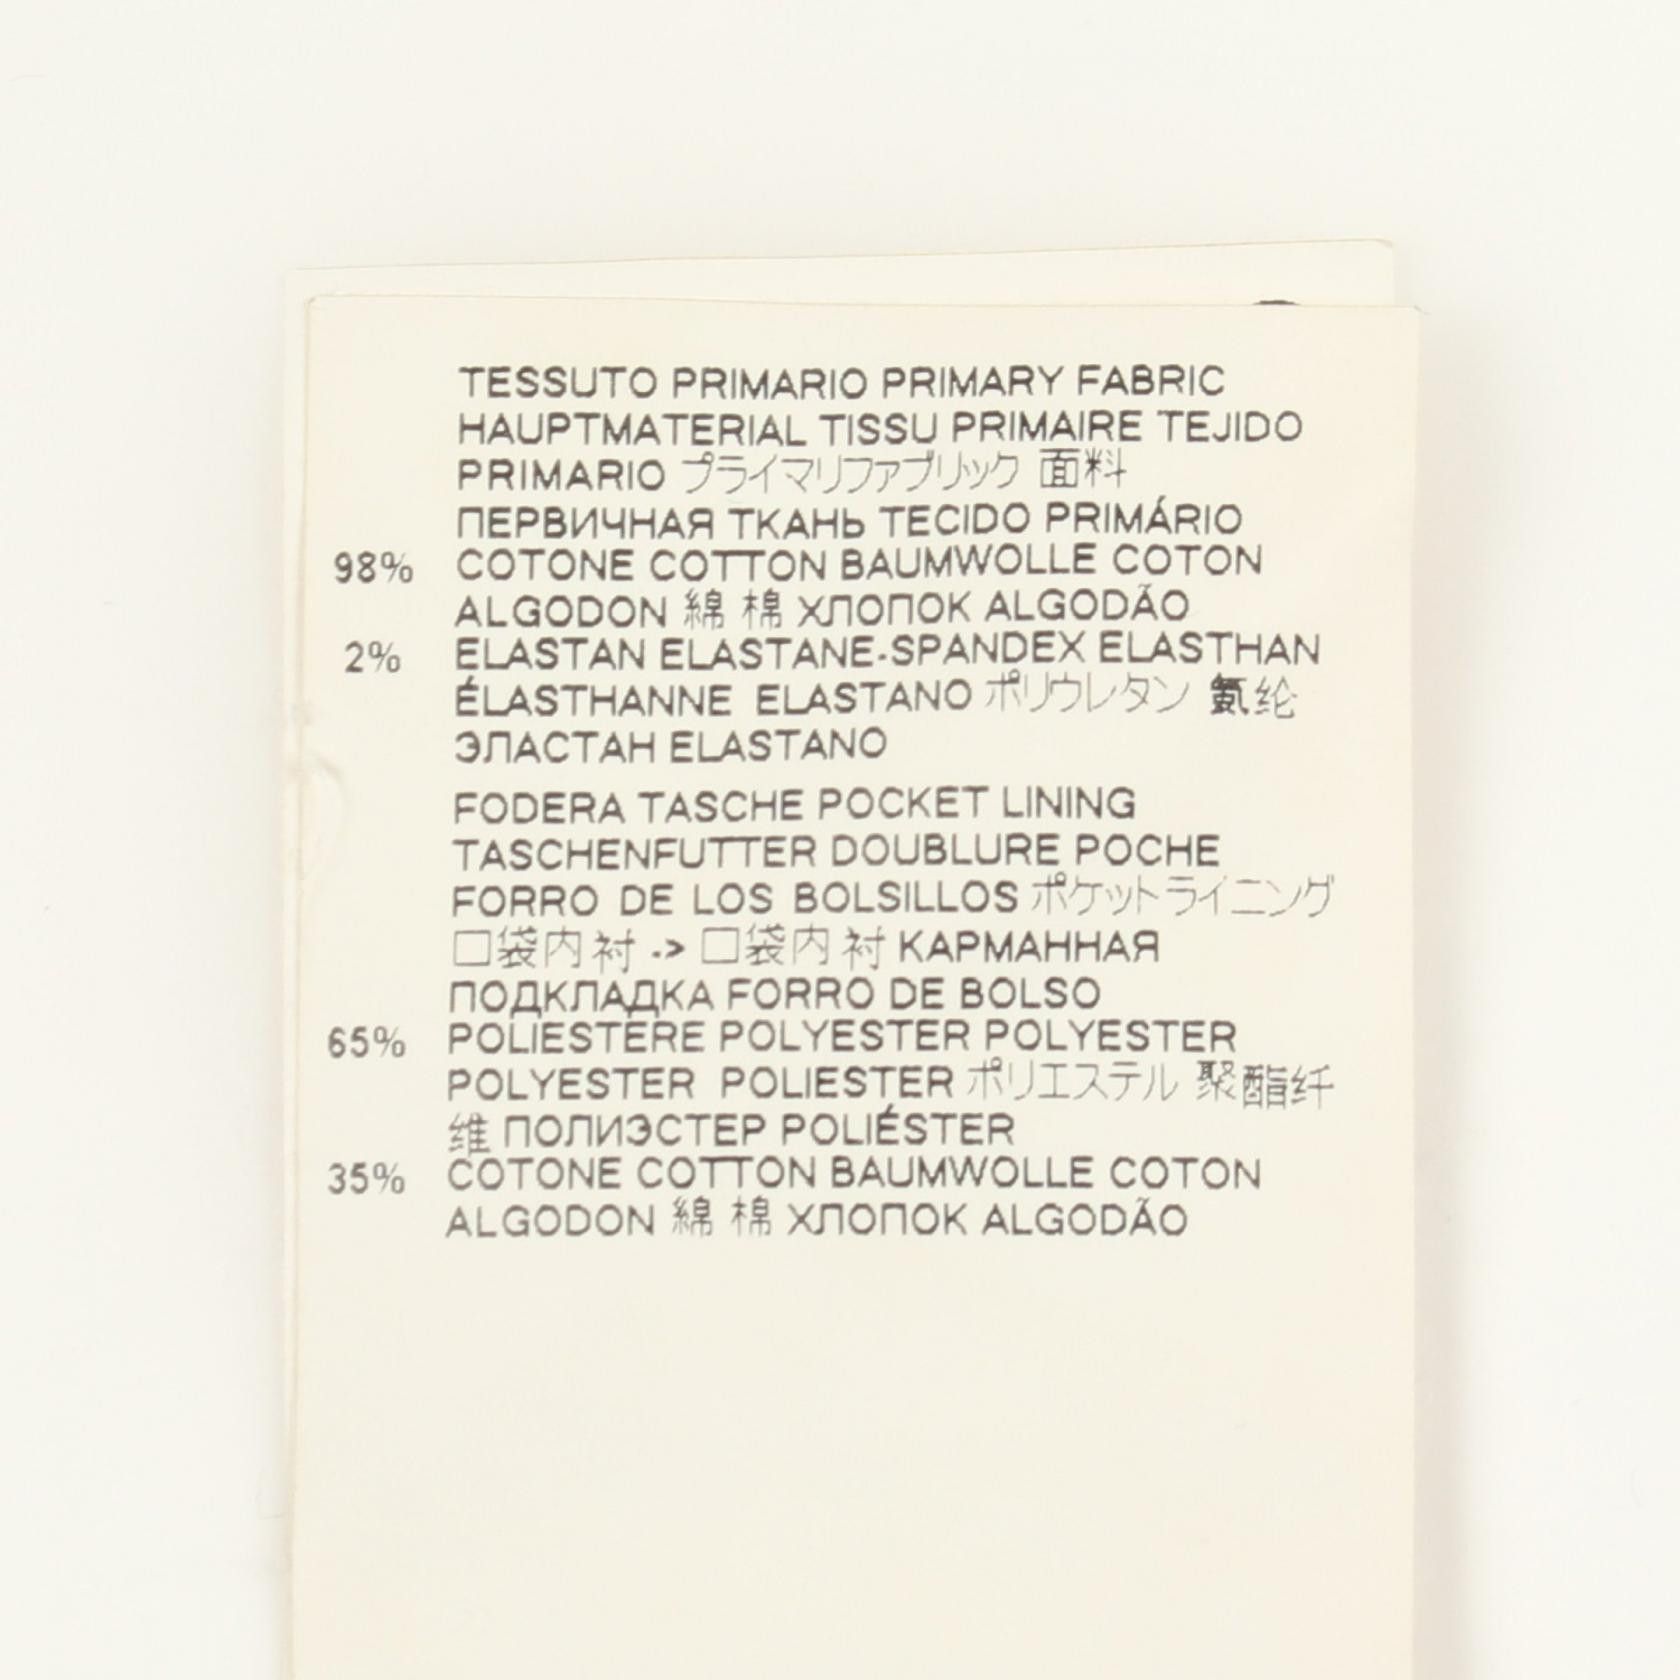 TESSUTO PRIMARIO PRIMARY FABRIC
HAUPTMATERIAL TISSU PRIMAIRE TEJIDO
PRIMARIO プライマリファブリック 面料
ПЕРВИЧНАЯ ТКАНЬ TECIDO PRIMÁRIO
98% COTONE COTTON BAUMWOLLE COTON
ALGODON 綿 棉 ХЛОПОК ALGODÃO
2% ELASTAN ELASTANE-SPANDEX ELASTHAN
ÉLASTHANNE ELASTANO ポリウレタン 氨纶
ЭЛАСТАН ELASTANO
FODERA TASCHE POCKET LINING
TASCHENFUTTER DOUBLURE POCHE
FORRO DE LOS BOLSILLOS ポケットライニング
口袋内衬 -> 口袋内衬 КАРМАННАЯ
ПОДКЛАДКА FORRO DE BOLSO
65% POLIESTERE POLYESTER POLYESTER
POLYESTER POLIESTER ポリエステル 聚酯纤
维 ПОЛИЭСТЕР POLIÉSTER
35% COTONE COTTON BAUMWOLLE COTON
ALGODON 綿 棉 ХЛОПОК ALGODÃO